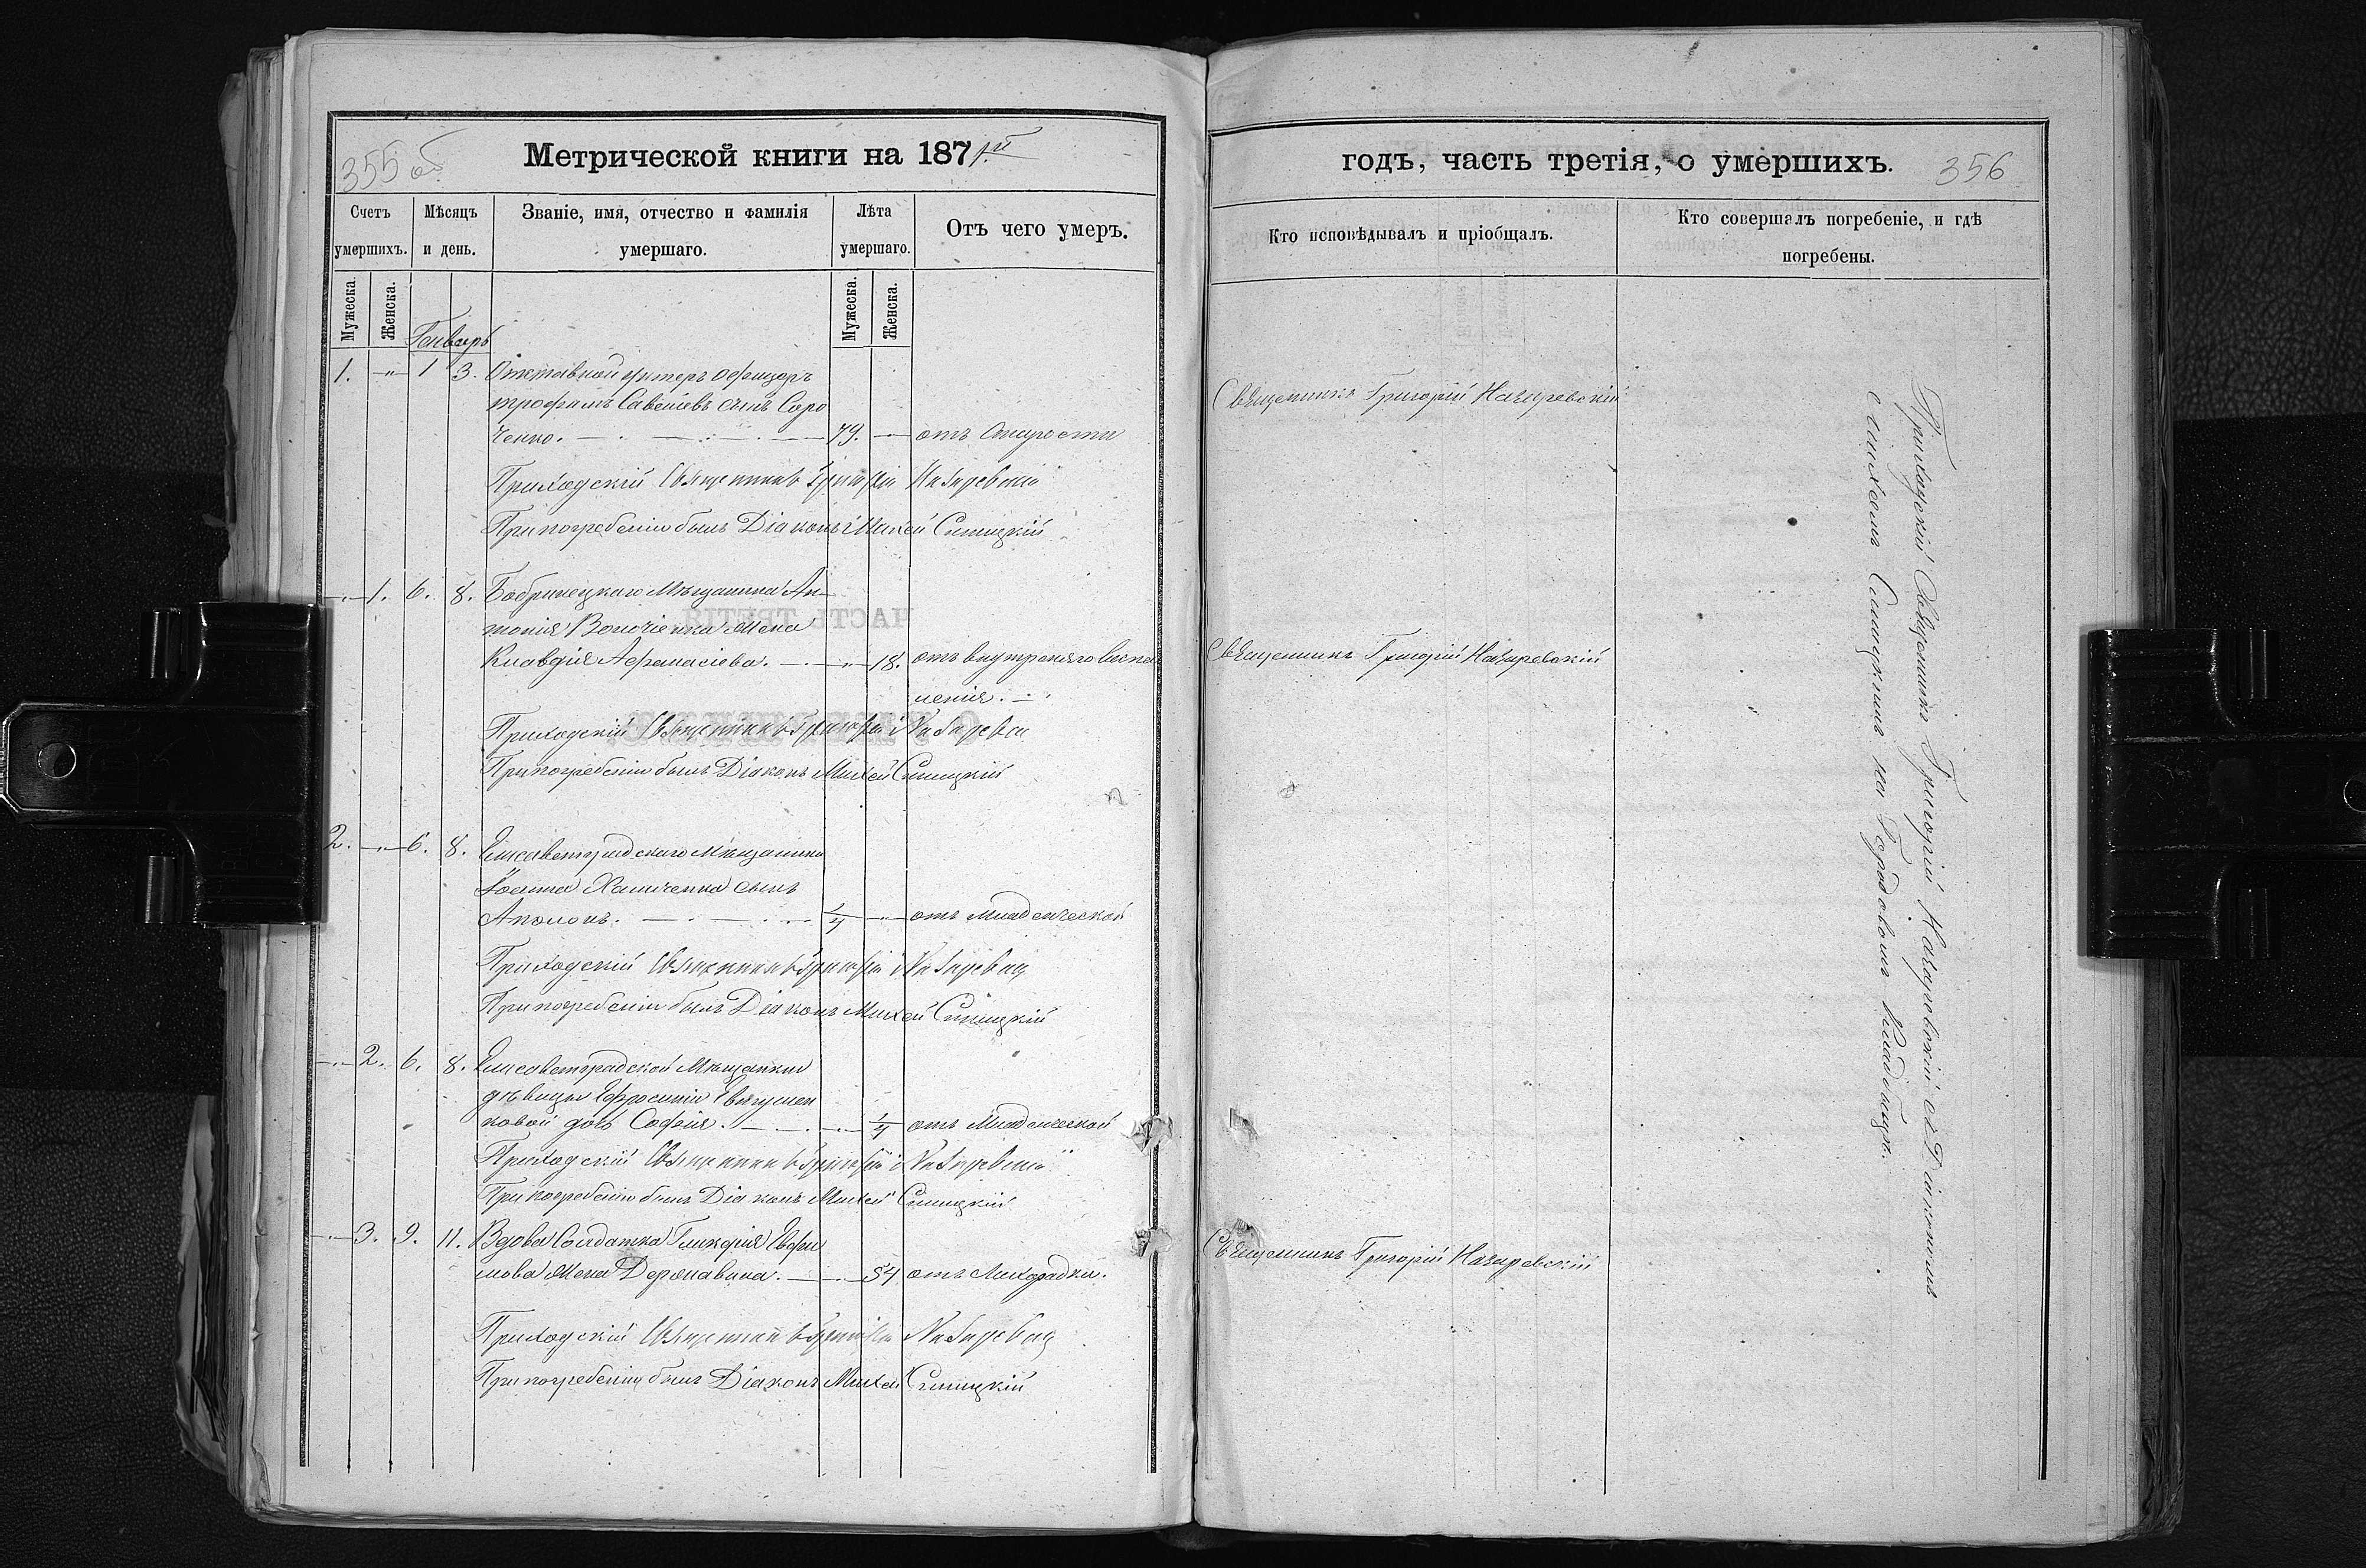 355 об.
Метрической книги на 1871.й
Счетъ умершихъ.
Мѣсяцъ и день.
Званіе, имя, отчество и фамилія умершаго.
Лѣта умершаго.
Отъ чего умеръ.
Мужеска.
Женска.
Мужеска.
Женска.
Генваръ
1. -"- 1 3. Отставной унтеръ офицеръ
трофимъ Савеліевъ сынъ Соро
ченко. 79. — отъ старости
Приходскій Священникъ Григорій Назаревскій
При погребеніи былъ Діаконъ Михей Синицкій
-.- 1. 6. 8. Бобринецкаго Мѣщанина Ан-
тонія жена
Клавдія Афанасіева. -"- 18. отъ внутреняго воспа
ленія.
Приходскій Священникъ Григорій Назаревскій
При погребеніи былъ Діаконъ Михей Синицкій
2. -"- 6. 8. Елисаветградскаго Мѣщанина
Іоанна сынъ
Аполонъ. 1/4 -"- отъ младенческой
Приходскій Священникъ Григорій Назаревскій
При погребеніи былъ Діаконъ Михей Синицкій
-.- 2. 6. 8. Елисоветградской Мѣщанки
дѣвицы Ефросиніи
ковой дочь Софія. 1/4 отъ Младенческой
Приходскій Священникъ Григорій Назаревскій
При погребеніи былъ Діаконъ Михей Синицкій
-.- 3. 9. 11. Вдова Солдатка Гликерія Ефи
мова жена Державина. 54 отъ Лихорадки.
Приходскій Священникъ Григорій Назаревскій
При погребеніи былъ Діаконъ Михей Синицкій
годъ, часть третія, о умершихъ.
356
Кто исповѣдывалъ и пріобщалъ.
Кто совершалъ погребеніе, и гдѣ погребены.
Священникъ Григорій Назаревскій
Священникъ Григорій Назаревскій
Священникъ Григорій Назаревскій
Приходскій Священникъ Григорій Назаревскій съ Діакономъ
Михеемъ Синицкимъ на Городовомъ Кладбищѣ.